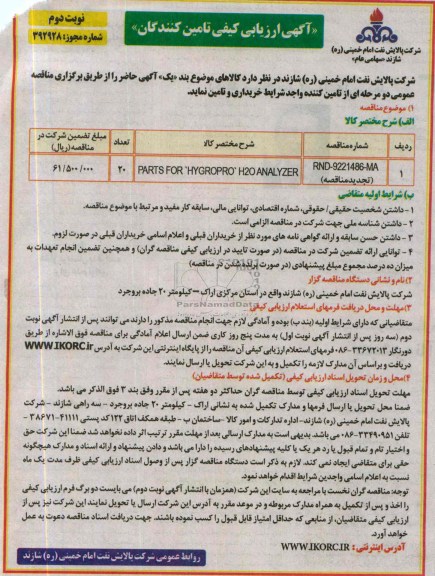 نوبت دوم
شماره مجوز: ۳۹۲۹۲۸
«آگهی ارزیابی کیفی تامین کنندگان»
شرکت پالایش نفت امام خمینی (ره)
شازند «سهامی عام»
شرکت پالایش نفت امام خمینی (ره) شازند در نظر دارد کالاهای موضوع بند «یک» آگهی حاضر را از طریق برگزاری مناقصه
عمومی دو مرحله ای از تامین کننده واجد شرایط خریداری و تامین نماید.
۱) موضوع مناقصه
الف) شرح مختصر کالا
ردیف شماره مناقصه شرح مختصر کالا تعداد مبلغ تضمین شرکت در مناقصه (ریال)
۱ RND-9221486-MA (تجدید مناقصه) PARTS FOR "HYGROPRO" H2O ANALYZER ۲۰ ۶۱/۵۰۰/۰۰۰
ب) شرایط اولیه متقاضی
۱ - داشتن شخصیت حقیقی/ حقوقی، شماره اقتصادی، توانایی مالی، سابقه کار مفید و مرتبط با موضوع مناقصه.
۲ - داشتن شناسه ملی جهت شرکت در مناقصه الزامی است.
۳ - داشتن حسن سابقه و ارائه گواهی نامه های مورد نظر از خریداران قبلی و اعلام اسامی خریداران قبلی در صورت لزوم.
۴ - توانایی ارائه تضمین شرکت در مناقصه (در صورت تایید در ارزیابی کیفی مناقصه گران) و همچنین تضمین انجام تعهدات به
میزان ده درصد مجموع مبلغ پیشنهادی (در صورت برنده شدن در مناقصه)
۲) نام و نشانی دستگاه مناقصه گزار
شرکت پالایش نفت امام خمینی (ره) شازند واقع در استان مرکزی اراک - کیلومتر ۲۰ جاده بروجرد
۳) مهلت و محل دریافت فرمهای استعلام ارزیابی کیفی
متقاضیانی که دارای شرایط اولیه (بند ب) بوده و آمادگی لازم جهت انجام مناقصه مذکور را دارند می توانند پس از انتشار آگهی نوبت
دوم (سه روز پس از انتشار آگهی نوبت اول) به مدت پنج روز کاری ضمن ارسال اعلام آمادگی برای مناقصه فوق الاشاره از طریق
دورنگار ۳۳۶۷۲۰۱۳-۰۸۶ فرمهای استعلام ارزیابی کیفی آن مناقصه را از پایگاه اینترنتی این شرکت به آدرس WWW.IKORC.IR
دریافت و بر اساس آن مدارک لازمه را تکمیل و به این شرکت تحویل یا ارسال نمایند.
۴) محل و زمان تحویل اسناد ارزیابی کیفی (تکمیل شده توسط متقاضیان)
مهلت تحویل اسناد ارزیابی کیفی توسط مناقصه گران حداکثر دو هفته پس از مقرر وفق بند ۳ فوق الذکر می باشد.
ضمنا محل تحویل یا ارسال فرمها و مدارک تکمیل شده به نشانی اراک - کیلومتر ۲۰ جاده بروجرد - سه راهی شازند - شرکت
پالایش نفت امام خمینی (ره) شازند- اداره تدارکات و امور کالا -ساختمان ب - طبقه همکف اتاق ۱۲۲ کد پستی ۴۱۱۱۱-۳۸۶۷۱ -
تلفن ۳۳۴۹۰۹۵۱-۰۸۶ می باشد. بدیهی است به مدارک ارسالی بعد از مهلت مقرر ترتیب اثر داده نخواهد شد ضمنا این شرکت حق
و اختیار تام و تمام قبول یا رد هر یک یا کلیه پیشنهادهای رسیده را دارا می باشد و دادن پیشنهاد و ارائه اسناد و مدارک هیچگونه
حقی برای متقاضی ایجاد نمی کند. لازم به ذکر است دستگاه مناقصه گزار پس از وصول اسناد ارزیابی کیفی ظرف مدت یک ماه
نسبت به اعلام اسامی واجدین شرایط اقدام خواهد نمود.
توجه: مناقصه گران نخست با مراجعه به سایت این شرکت (همزمان با انتشار آگهی نوبت دوم) می بایست دو برگ فرم ارزیابی کیفی
را اخذ و پس از تکمیل به همراه مدارک مربوطه و در موعد مقرر به آدرس این شرکت ارسال یا تحویل نمایند این شرکت نیز پس از
ارزیابی کیفی متقاضیان، از منابعی که حداقل امتیاز قابل قبول را کسب نموده باشند. جهت دریافت اسناد مناقصه دعوت به عمل
خواهد آورد.
آدرس اینترنتی: WWW.IKORC.IR
روابط عمومی شرکت پالایش نفت امام خمینی (ره) شازند